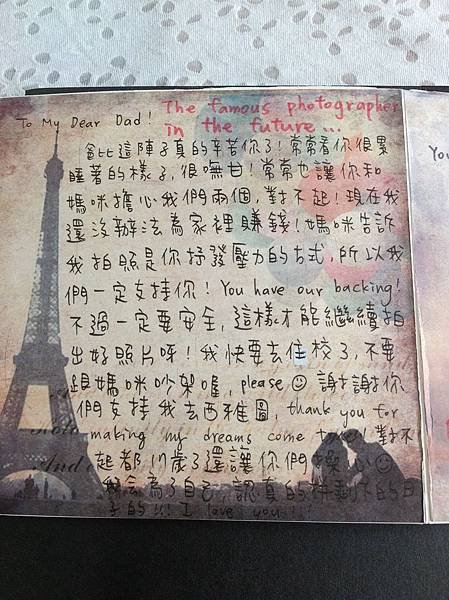 To My Dear Dad!
The famous photographer
in the future...
爸比這陣子真的辛苦你了!常常看你很累
睡著的樣子,很嘸甘!常常也讓你和
媽咪擔心我們兩個,對不起!現在我
還沒辦法為家裡賺錢!媽咪告訴
我拍照是你抒發壓力的方式,所以我
們一定支持你!You have our backing!
不過一定要安全,這樣才能繼續拍
出好照片呀!我快要去住校了,不要
跟媽咪吵架喔,please☺謝謝你
們支持我去西雅圖,thank you for
making my dreams come true!對不
起都17歲了還讓你們操心☺
我會為了自己,認真的拼剩下的日
子的!!!I love you!!!
You